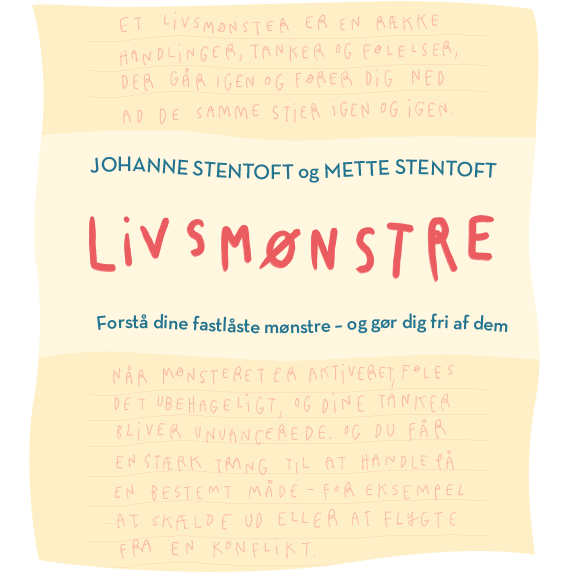 ET LiVSMØNSTER ER EN RÆKKE
HANDLINGER, TANKER OG FØLELSER,
DER GÅR IGEN OG FØRER DiG NED
AD DE SAMME STiER IGEN OG IGEN.
JOHANNE STENTOFT og METTE STENTOFT
LiVSMØNSTRE
Forstå dine fastlåste mønstre – og gør dig fri af dem
NÅR MØNSTERET ER AKTiVERET, FØLES
DET UBEHAGELiGT, OG DiNE TANKER
BLiVER UNUANCEREDE. OG DU FÅR
EN STÆRK TRANG TIL AT HANDLE PÅ
EN BESTEMT MÅDE – FOR EKSEMPEL
AT SKÆLDE UD ELLER AT FLYGTE
FRA EN KONFLIKT.